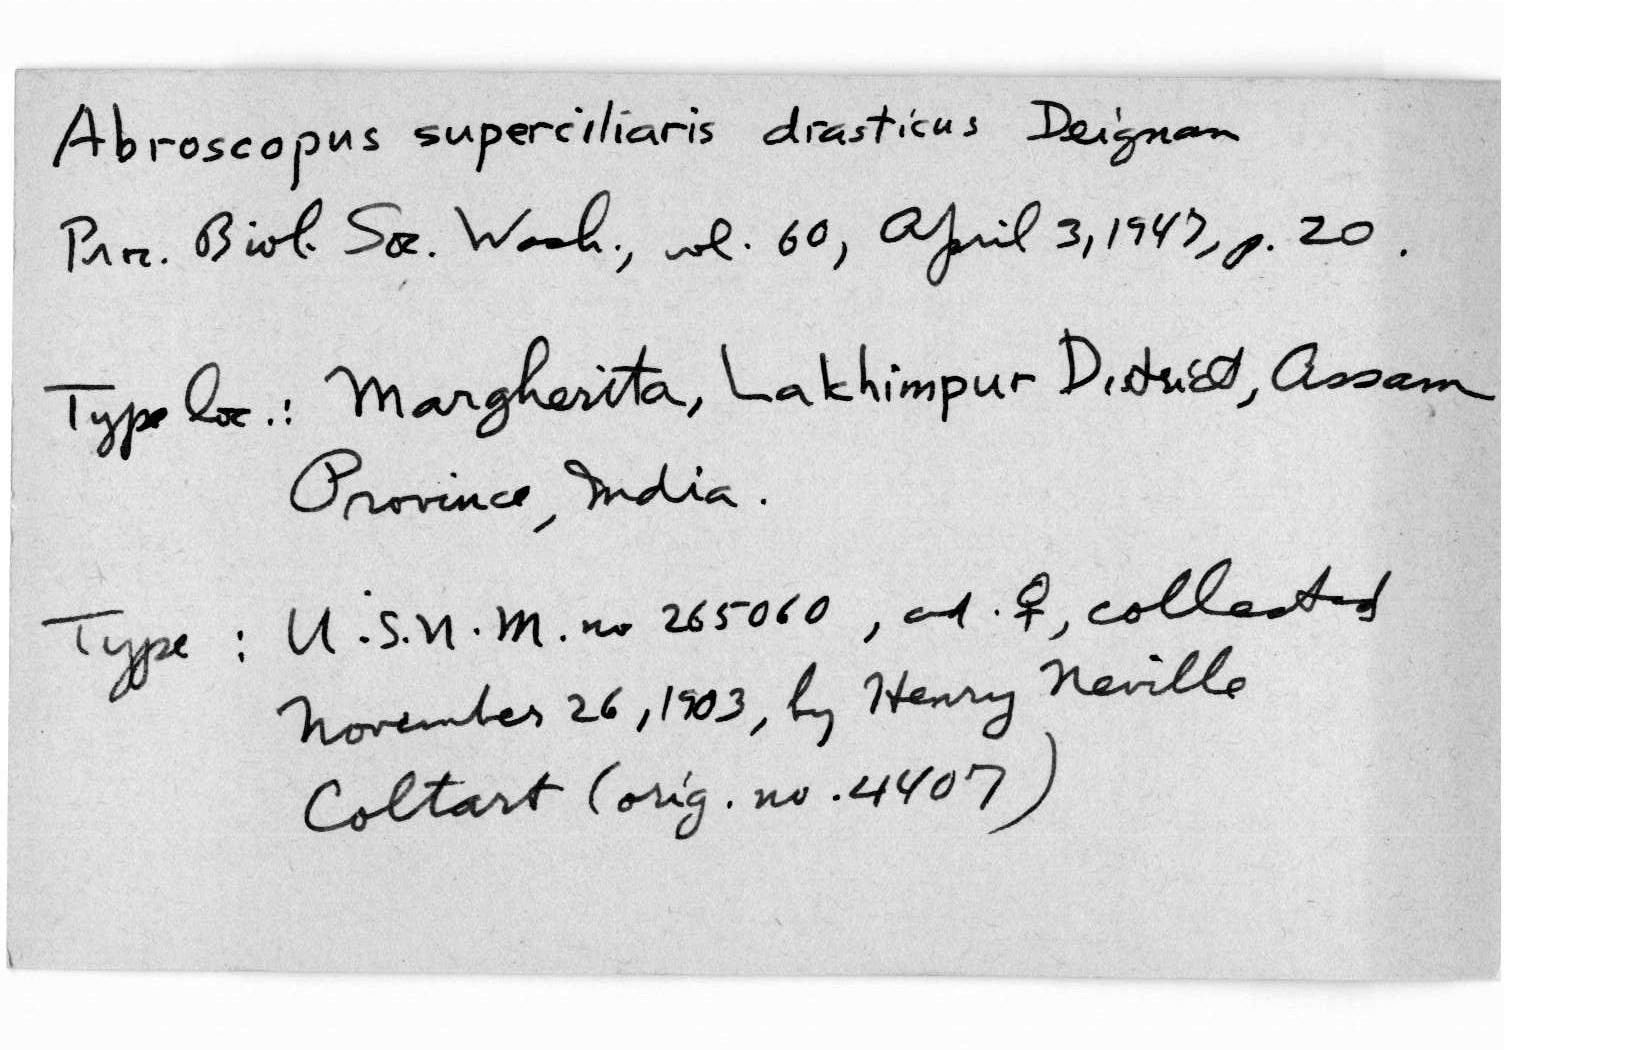 Abroscopus superciliaris drasticus Deignan
Proc. Biol. Soc. Wash., vol. 60, April 3, 1947, p. 20.
Type loc.: Margherita, Lakhimpur District, Assam
Province, India.
Type: U.S.N.M. no 265060, ad. ♀, collected
November 26, 1903, by Henry Neville
Coltart (orig. no. 4407)